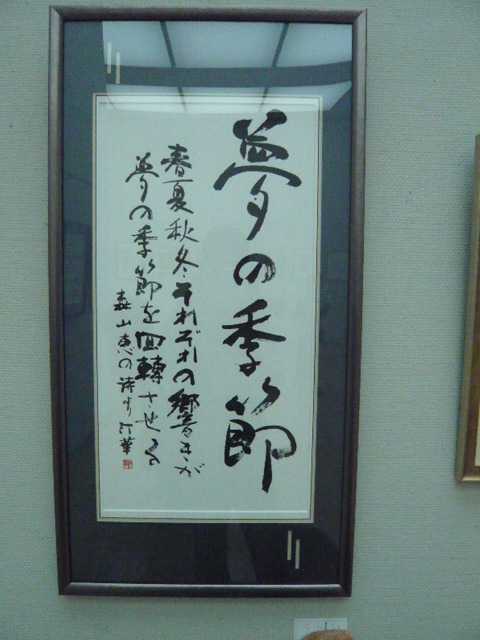 夢の季節
春夏秋冬それぞれの響きが
夢の季節を回轉させる
森山恵の詩より 華